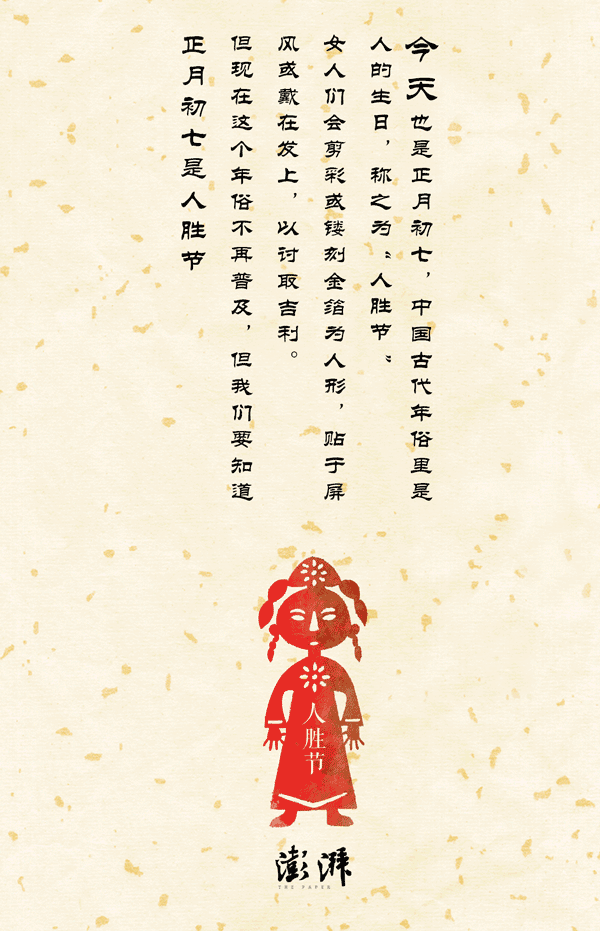 今天也是正月初七，中国古代年俗里是
人的生日，称之为“人胜节”
女人们会剪彩或镂刻金箔为人形，贴于屏
风或戴在发上，以讨取吉利。
但现在这个年俗不再普及，但我们要知道
正月初七是人胜节
人胜节
澎湃
THE PAPER